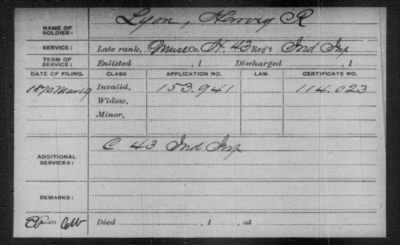 NAME OF SOLDIER: Lyon, Harvey R
SERVICE: Late rank, Musc Co. H. 43 Reg't Ind Inf
TERM OF SERVICE: Enlisted , 1 Discharged , 1
DATE OF FILING. CLASS APPLICATION NO. LAW. CERTIFICATE NO.
1870 Mar 19 Invalid, 153.941 114.023
Widow,
Minor,
ADDITIONAL SERVICES: C 43 Ind Inf
REMARKS:
Died , 1 , at